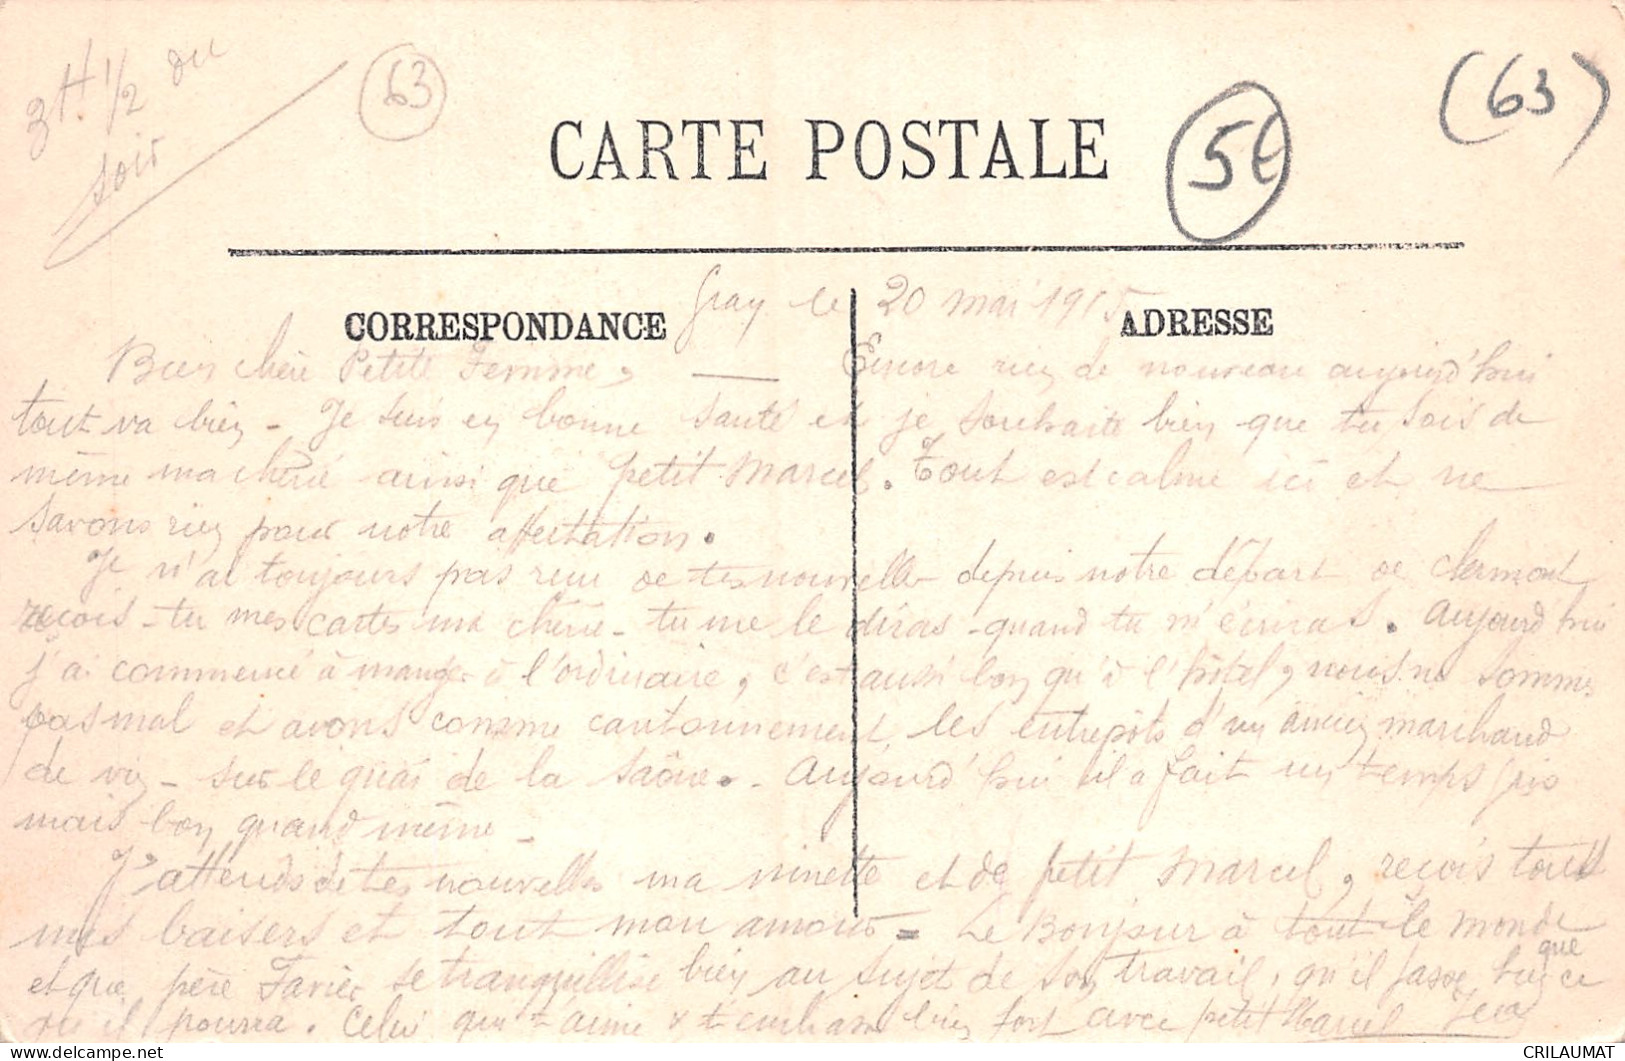 3H 1/2 du
soir
63
CARTE POSTALE
5€
(63)
CORRESPONDANCE
ADRESSE
Gray le 20 mai 1915
Bien chère Petite Femme, — Encore rien de nouveau aujourd'hui
tout va bien - Je suis en bonne santé et je souhaite bien que tu sois de
même ma chérie ainsi que petit Marcel. Tout est calme ici et ne
savons rien pour notre affectation.
Je n'ai toujours pas reçu de tes nouvelles depuis notre départ de Clermont
reçois-tu mes cartes ma chérie - tu me le diras quand tu m'écriras. Aujourd'hui
j'ai commencé à manger à l'ordinaire, c'est aussi bon qu'à l'hôtel, nous ne sommes
pas mal et avons comme cantonnement les entrepôts d'un ancien marchand
de vin - sur le quai de la Saône. - Aujourd'hui il a fait un temps gris
mais bon quand même -
J'attends de tes nouvelles ma ninette et de petit Marcel, reçois tous
mes baisers et tout mon amour = Le Bonjour à tout le monde
et que père Favier se tranquillise bien au sujet de son travail, qu'il fasse ce que
qu'il pourra. Celui qui t'aime & t'embrasse bien fort avec petit Marcel Jean
CRILAUMAT